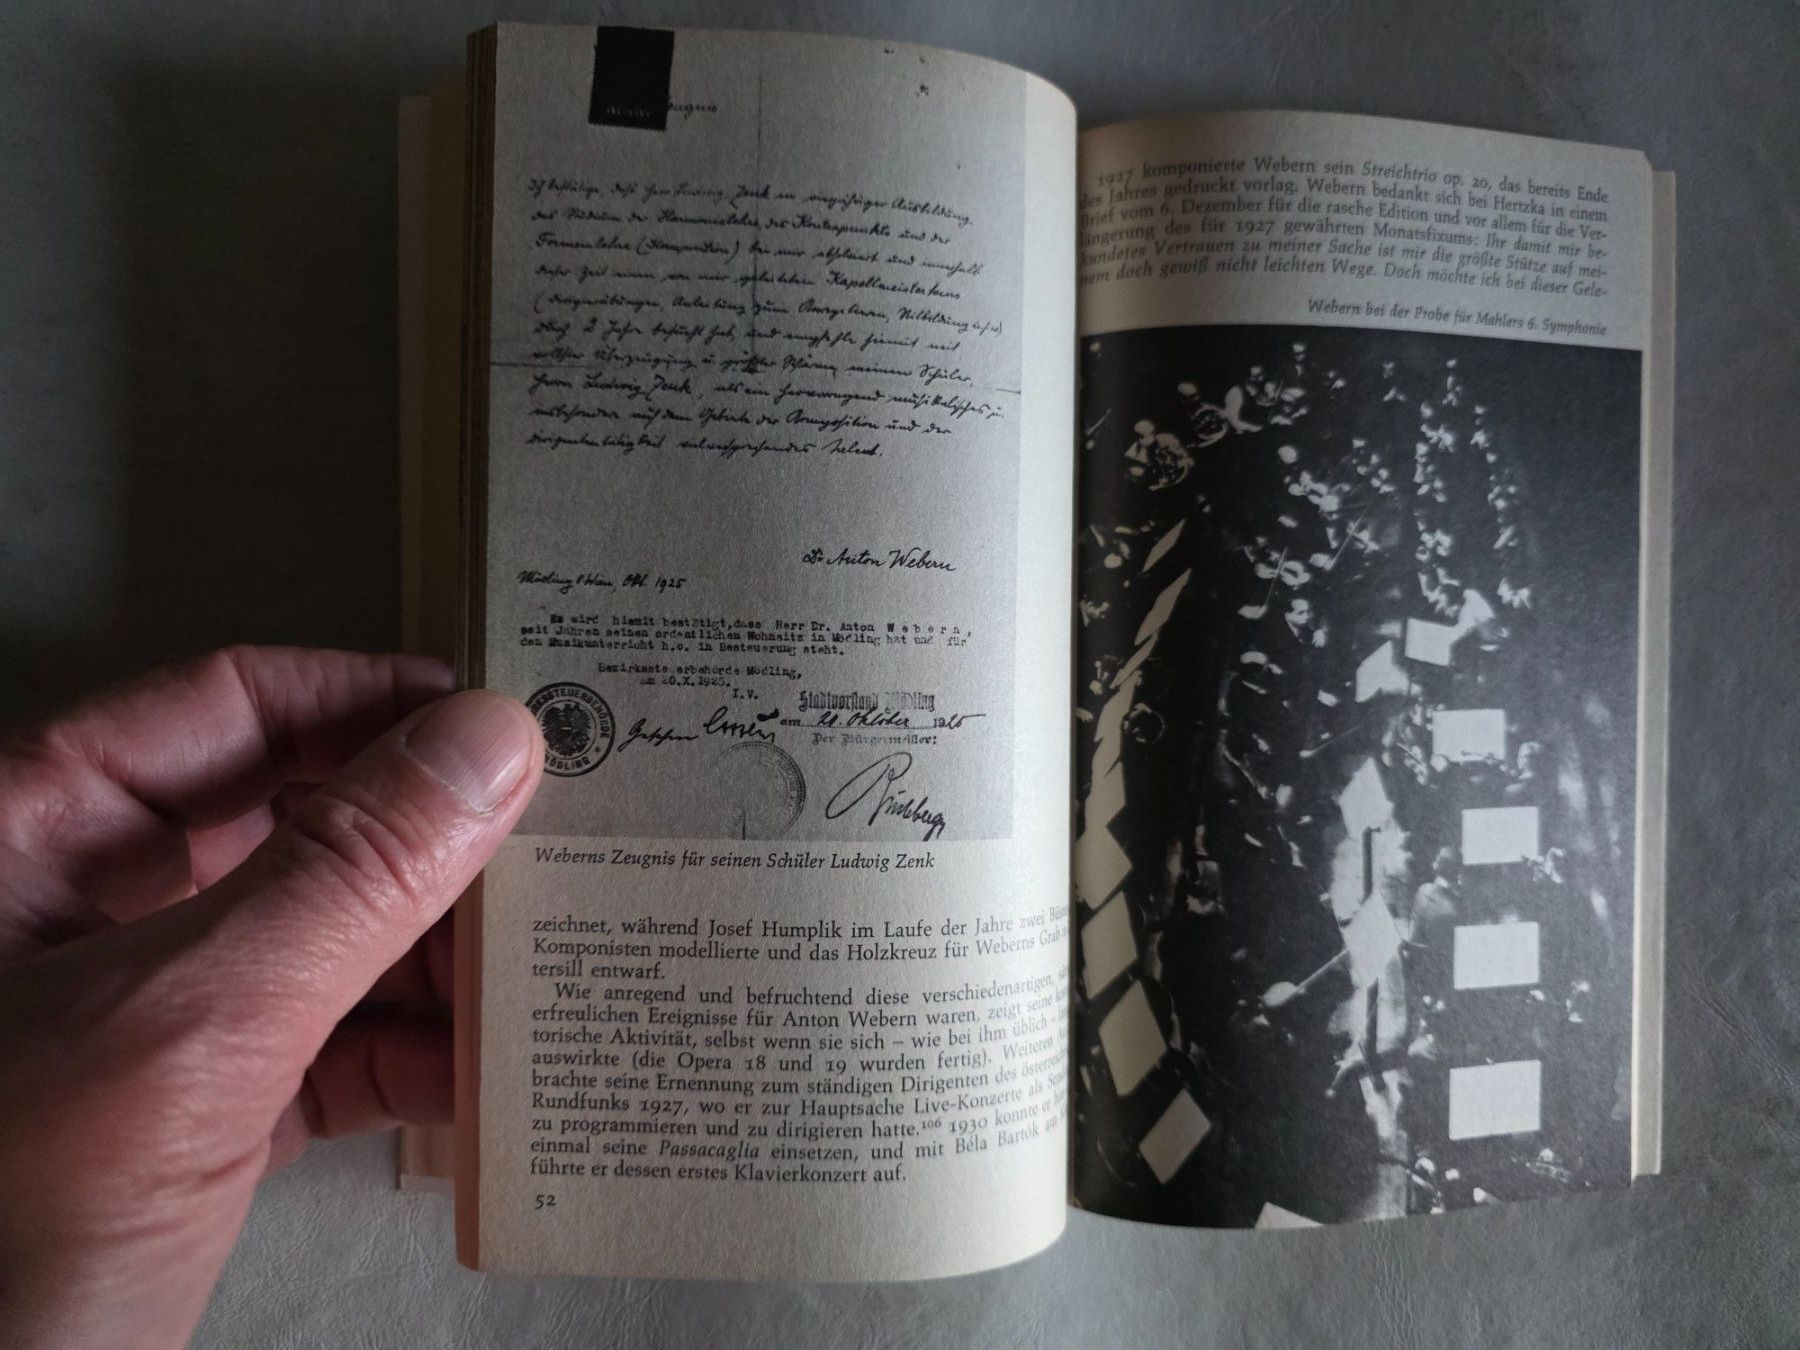 Zeugnis
Ich bestätige, dass Herr Ludwig Zenk in vierjähriger Ausbildung
das Studium der Harmonielehre, des Kontrapunkts und der
Formenlehre (Komposition) bei mir absolviert und innerhalb
dieser Zeit einen von mir geleiteten Kapellmeisterkurs
(Dirigierübungen, Anleitung zum Korrepetieren, Stilbildung
durch 2 Jahre besucht hat und empfehle hiemit mit
vollster Überzeugung u. größter Wärme meinen Schüler,
Herrn Ludwig Zenk, als ein hervorragend musikalisches u.
insbesondere auf dem Gebiete der Komposition und der
Dirigententätigkeit vielversprechendes Talent.
Dr Anton Webern
Mödling b/Wien, Okt. 1925
Es wird hiemit bestätigt, dass Herr Dr. Anton Webern,
seit Jahren seinen ordentlichen Wohnsitz in Mödling hat und für
den Musikunterricht h.o. in Besteuerung steht.
Bezirkssteuerbehörde Mödling,
am 20.X.1925.
I.V.
Stadtvorstand Mödling
am 21. Oktober 1925
Der Bürgermeister:
MÖDLING
Gesehen
Weberns Zeugnis für seinen Schüler Ludwig Zenk
zeichnet, während Josef Humplik im Laufe der Jahre zwei
Komponisten modellierte und das Holzkreuz für Weberns Grab
tersill entwarf.
Wie anregend und befruchtend diese verschiedenartigen,
erfreulichen Ereignisse für Anton Webern waren, zeigt seine
torische Aktivität, selbst wenn sie sich – wie bei ihm üblich –
auswirkte (die Opera 18 und 19 wurden fertig). Weiteren
brachte seine Ernennung zum ständigen Dirigenten des
Rundfunks 1927, wo er zur Hauptsache Live-Konzerte als
zu programmieren und zu dirigieren hatte.¹⁰⁶ 1930 konnte er
einmal seine Passacaglia einsetzen, und mit Béla Bartók am
führte er dessen erstes Klavierkonzert auf.
52
1927 komponierte Webern sein Streichtrio op. 20, das bereits Ende
des Jahres gedruckt vorlag. Webern bedankt sich bei Hertzka in einem
Brief vom 6. Dezember für die rasche Edition und vor allem für die Ver-
längerung des für 1927 gewährten Monatsfixums: Ihr damit mir be-
kundetes Vertrauen zu meiner Sache ist mir die größte Stütze auf mei-
nem doch gewiß nicht leichten Wege. Doch möchte ich bei dieser Gele-
Webern bei der Probe für Mahlers 6. Symphonie